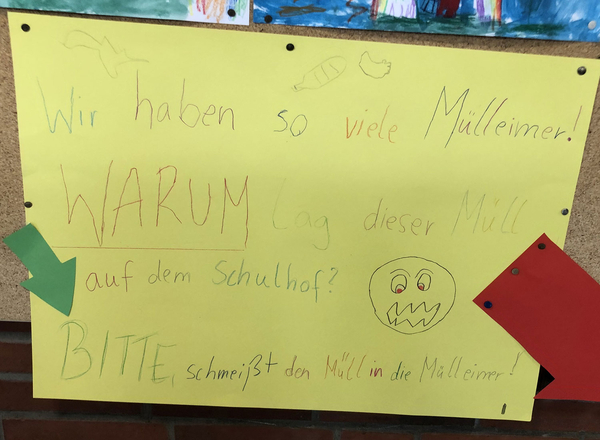 Wir haben so viele Mülleimer!
WARUM lag dieser Müll
auf dem Schulhof?
BITTE, schmeißt den Müll in die Mülleimer!